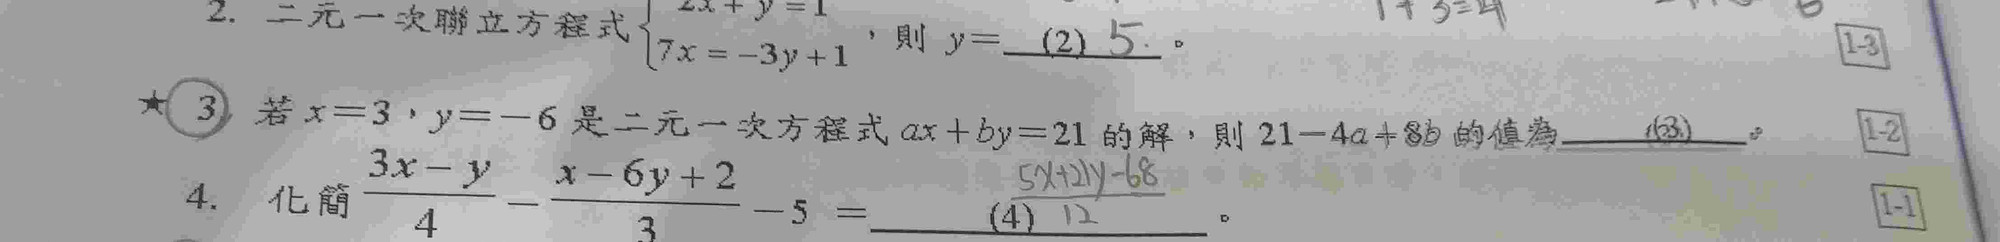 2. 二元一次聯立方程式 { 2x+y=1
7x=-3y+1 ,則 y= (2) 5 。 1-3
★ 3. 若 x=3,y=-6 是二元一次方程式 ax+by=21 的解,則 21-4a+8b 的值為 (3) 。 1-2
4. 化簡 (3x-y)/4 - (x-6y+2)/3 - 5 = (4) (5x+21y-68)/12 。 1-1